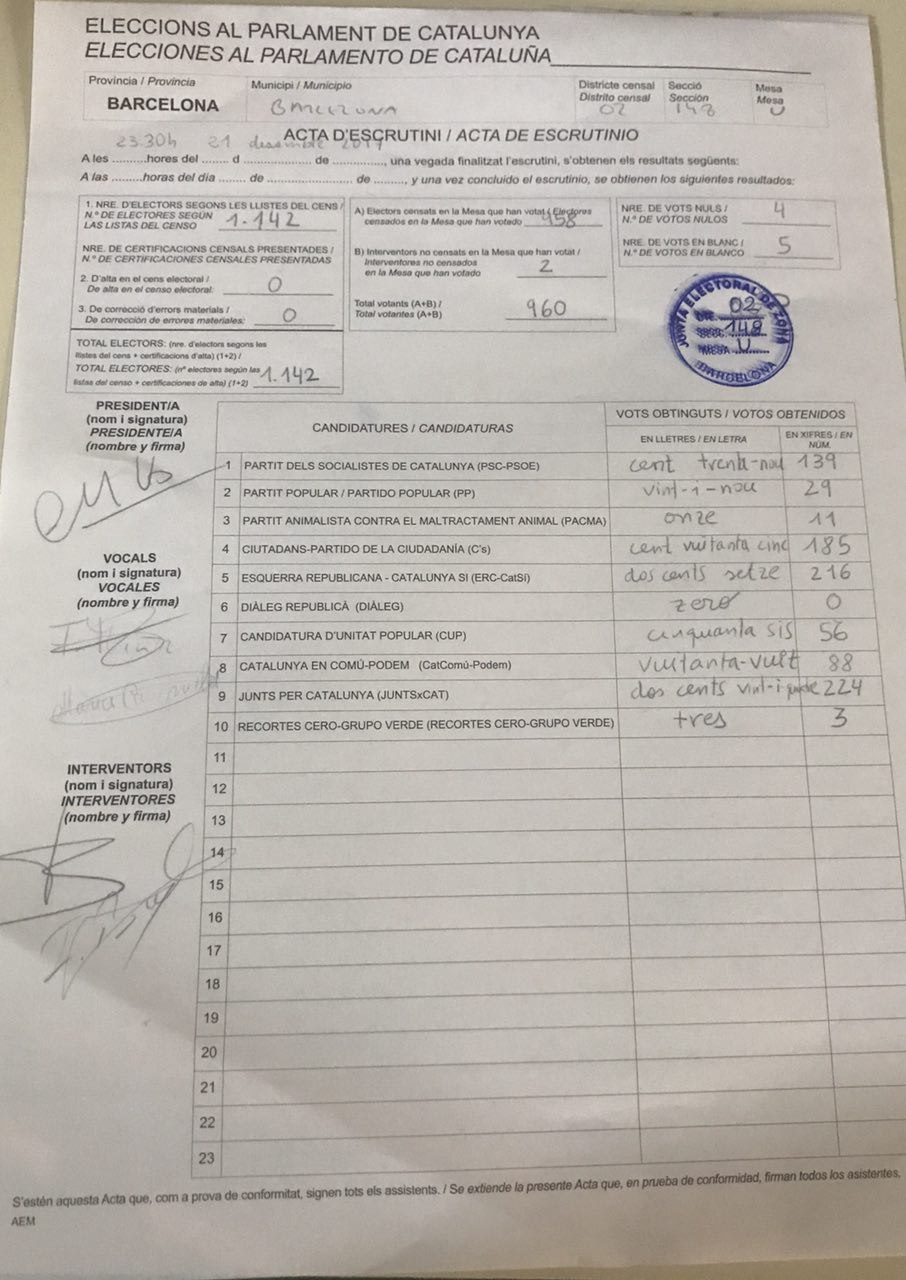 ELECCIONS AL PARLAMENT DE CATALUNYA
ELECCIONES AL PARLAMENTO DE CATALUÑA
Provincia / Provincia
BARCELONA
Municipi / Municipio
BARCELONA
Districte censal
Distrito censal
02
Secció
Sección
148
Mesa
Mesa
U
ACTA D'ESCRUTINI / ACTA DE ESCRUTINIO
23:30h 21 desembre 2017
A les .........hores del ....... d .................. de ..........., una vegada finalitzat l'escrutini, s'obtenen els resultats següents:
A las .........horas del día ....... de .................. de ........, y una vez concluido el escrutinio, se obtienen los siguientes resultados:
1. NRE. D'ELECTORS SEGONS LES LLISTES DEL CENS /
N.º DE ELECTORES SEGÚN
LAS LISTAS DEL CENSO
1.142
NRE. DE CERTIFICACIONS CENSALS PRESENTADES /
N.º DE CERTIFICACIONES CENSALES PRESENTADAS
2. D'alta en el cens electoral /
De alta en el censo electoral:
0
3. De correcció d'errors materials /
De corrección de errores materiales:
0
TOTAL ELECTORS: (nre. d'electors segons les
llistes del cens + certificacions d'alta) (1+2) /
TOTAL ELECTORES: (nº electores según las
listas del censo + certificaciones de alta) (1+2)
1.142
A) Electors censats en la Mesa que han votat / Electores
censados en la Mesa que han votado
958
B) Interventors no censats en la Mesa que han votat /
Interventores no censados
en la Mesa que han votado
2
Total votants (A+B) /
Total votantes (A+B)
960
NRE. DE VOTS NULS /
N.º DE VOTOS NULOS
4
NRE. DE VOTS EN BLANC /
N.º DE VOTOS EN BLANCO
5
JUNTA ELECTORAL DE ZONA
DTE. 02
SECC. 148
MESA U
BARCELONA
PRESIDENT/A
(nom i signatura)
PRESIDENTE/A
(nombre y firma)
VOCALS
(nom i signatura)
VOCALES
(nombre y firma)
INTERVENTORS
(nom i signatura)
INTERVENTORES
(nombre y firma)
CANDIDATURES / CANDIDATURAS
VOTS OBTINGUTS / VOTOS OBTENIDOS
EN LLETRES / EN LETRA
EN XIFRES / EN
NÚM.
1 PARTIT DELS SOCIALISTES DE CATALUNYA (PSC-PSOE) cent trenta-nou 139
2 PARTIT POPULAR / PARTIDO POPULAR (PP) vint-i-nou 29
3 PARTIT ANIMALISTA CONTRA EL MALTRACTAMENT ANIMAL (PACMA) onze 11
4 CIUTADANS-PARTIDO DE LA CIUDADANÍA (C's) cent vuitanta cinc 185
5 ESQUERRA REPUBLICANA - CATALUNYA SI (ERC-CatSí) dos cents setze 216
6 DIÀLEG REPUBLICÀ (DIÀLEG) zero 0
7 CANDIDATURA D'UNITAT POPULAR (CUP) cinquanta sis 56
8 CATALUNYA EN COMÚ-PODEM (CatComú-Podem) vuitanta-vuit 88
9 JUNTS PER CATALUNYA (JUNTSxCAT) dos cents vint-i 224
10 RECORTES CERO-GRUPO VERDE (RECORTES CERO-GRUPO VERDE) tres 3
11
12
13
14
15
16
17
18
19
20
21
22
23
S'estén aquesta Acta que, com a prova de conformitat, signen tots els assistents. / Se extiende la presente Acta que, en prueba de conformidad, firman todos los asistentes.
AEM